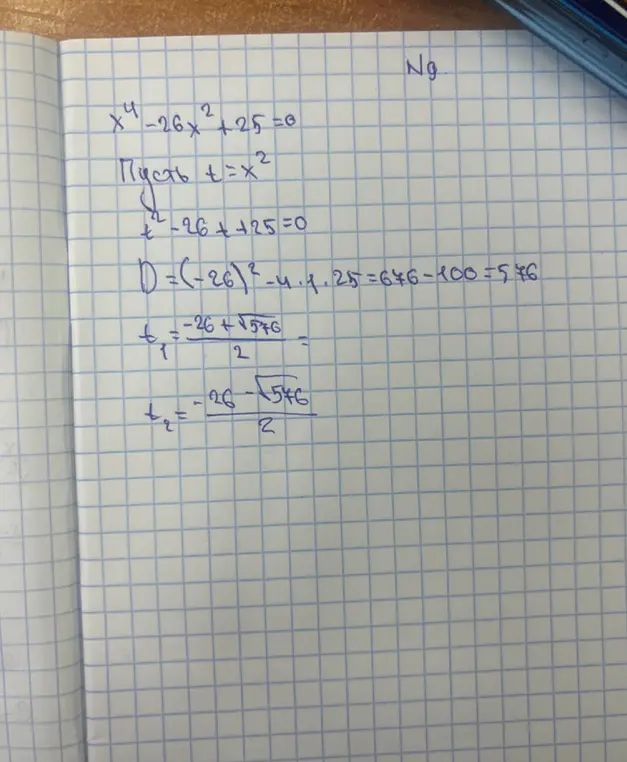 N9.
x⁴-26x²+25=0
Пусть t=x²
t²-26t+25=0
D=(-26)²-4·1·25=676-100=576
t₁=(-26+√576)/2=
t₂=(-26-√576)/2